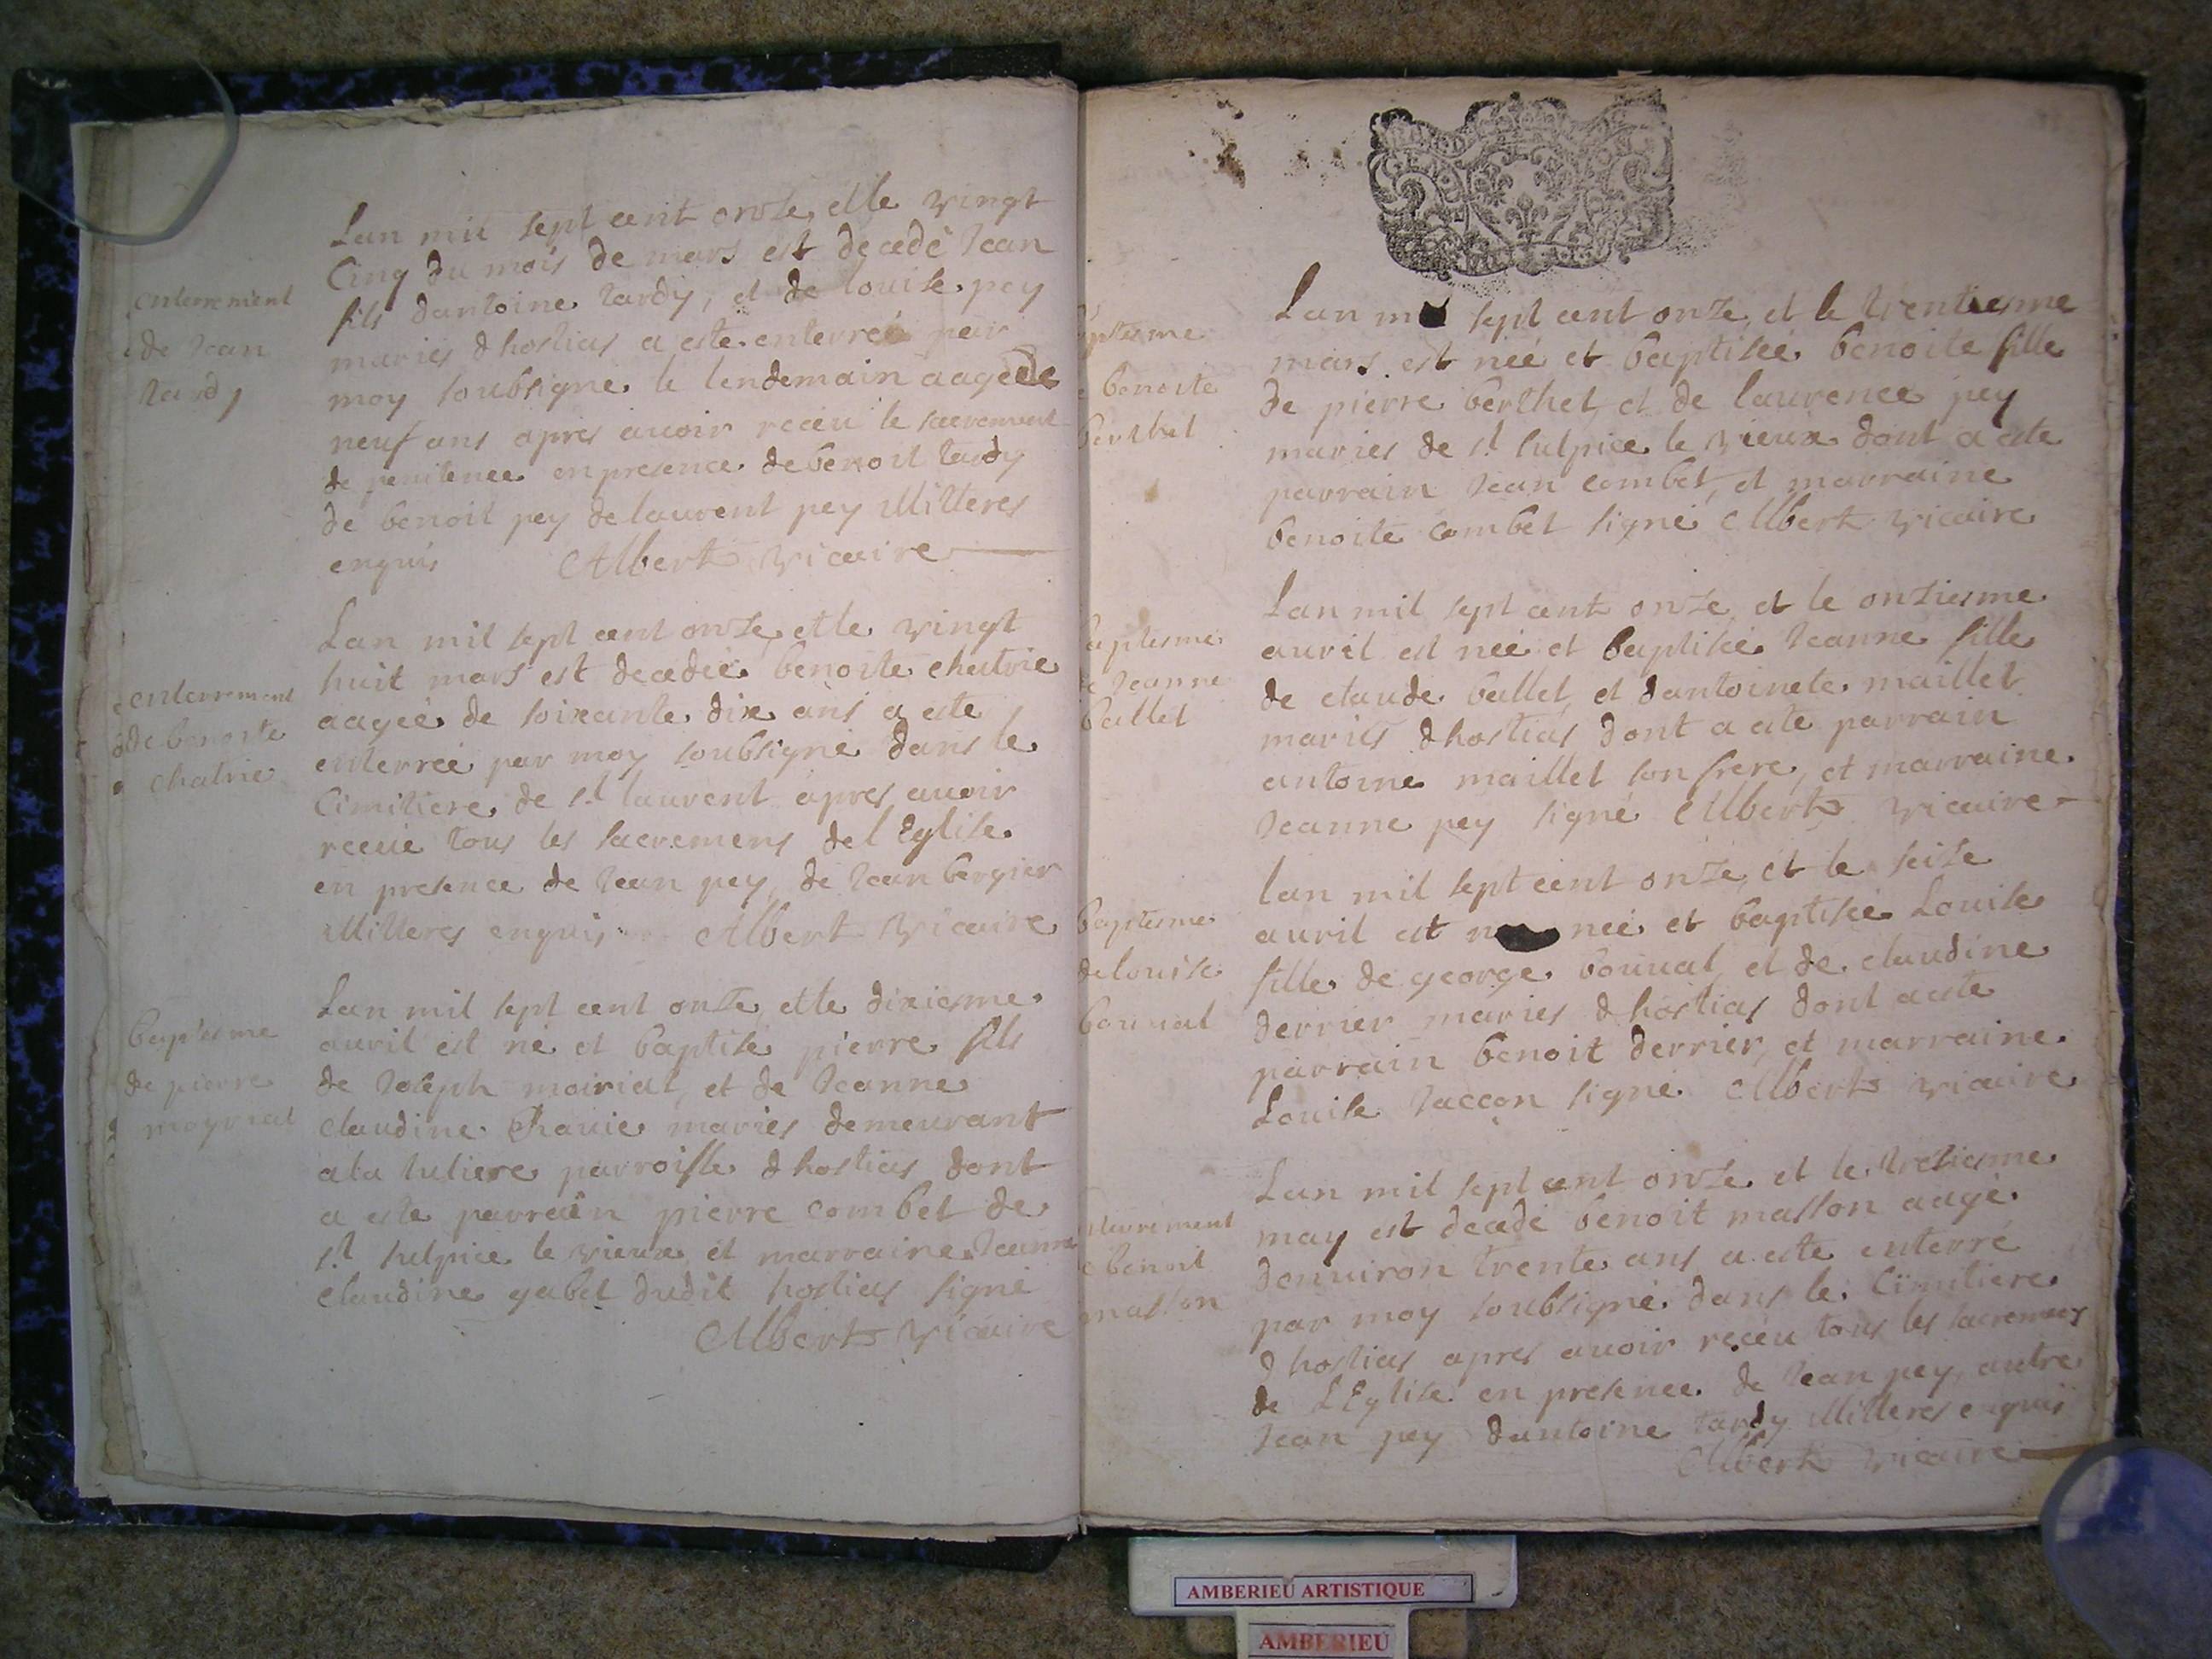 enterrement
de Jean
tardy
Lan mil sept cent onze, et le vingt
cinq du mois de mars est decedé Jean
fils dantoine tardy, et de louise pey
maries dhostias a este enterré par
moy soubsigné le lendemain aagé de
neuf ans apres auoir receu le sacrement
de penitence en presence de benoit tardy
de benoit pey de laurent pey illitteres
enquis Albert vicaire
enterrement
de benoite
chatrie
Lan mil sept cent onze, et le vingt
huit mars est decedée benoite chatrie
aagée de soixante dix ans a este
enterrée par moy soubsigné dans le
cimitiere de st laurent apres auoir
receue tous les sacremens de l Eglise
en presence de Jean pey, de Jean bergier
illitteres enquis Albert vicaire
baptesme
de pierre
moyriat
Lan mil sept cent onze, et le dixiesme
auril est né et baptisé pierre fils
de Joseph moiriat, et de Jeanne
claudine Rauie maries demeurant
a la parroisse dhostias dont
a este parrain pierre combet de
st sulpice le vieux et marraine Jeanne
claudine gabet dudit hostias signé
Albert vicaire
baptesme
benoite
berthet
Lan mil sept cent onze, et le trentiesme
mars est née et baptisée benoite fille
de pierre berthet, et de laurence pey
maries de st sulpice le vieux dont a este
parrain Jean combet, et marraine
benoite combet signé Albert vicaire
baptesme
de Jeanne
ballet
Lan mil sept cent onze, et le onziesme
auril est née et baptisée Jeanne fille
de claude ballet, et dantoinete maillet
maries dhostias dont a este parrain
antoine maillet son frere, et marraine
Jeanne pey signé Albert vicaire
baptesme
de louise
bouuat
lan mil sept cent onze, et le seize
auril est née et baptisée Louise
fille de george bouuat, et de claudine
derrier maries dhostias dont a este
parrain benoit derrier, et marraine
Louise Jaccon signé Albert vicaire
enterrement
benoit
masson
Lan mil sept cent onze et le tresiesme
may est decedé benoit masson aagé
denuiron trente ans a este enterré
par moy soubsigné dans le cimitiere
dhostias apres auoir receu tous les sacremens
de L Eglise en presence de Jean pey, autre
Jean pey dantoine tardy illitteres enquis
Albert vicaire
AMBERIEU ARTISTIQUE
AMBERIEU